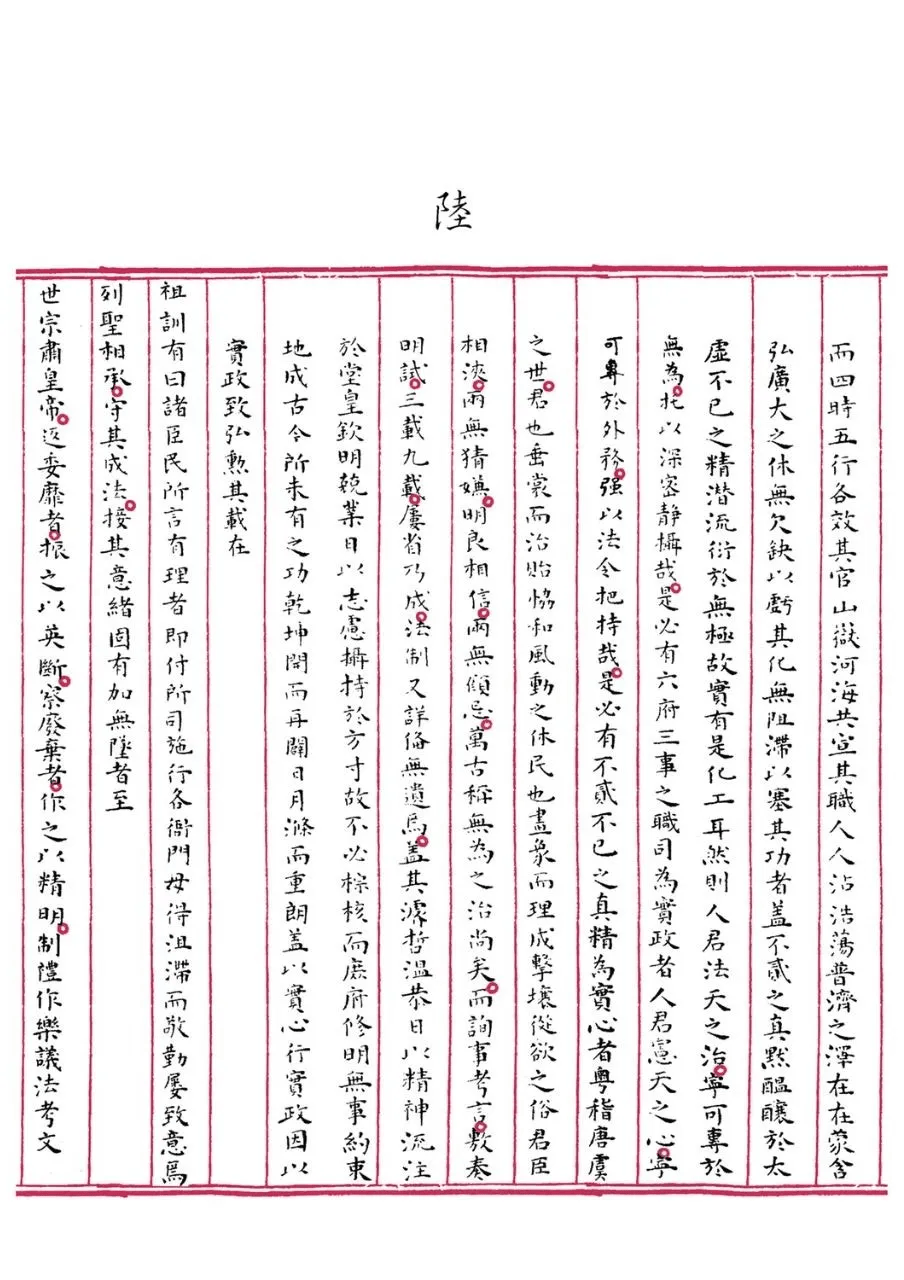 陸
而四時五行各效其官山嶽河海共宣其職人人沾浩蕩普濟之澤在在蒙含
弘廣大之休無欠缺以虧其化無阻滯以塞其功者蓋不貳之真默醞釀於太
虛不已之精潛流衍於無極故實有是化工耳然則人君法天之治寧可專於
無為托以深密靜攝哉是必有六府三事之職司為實政者人君憲天之心寧
可專於外務強以法令把持哉是必有不貳不已之真精為實心者粵稽唐虞
之世君也垂裳而治貽恊和風動之休民也畫象而理成擊壤從欲之俗君臣
相浹兩無猜嫌明良相信兩無傾忌萬古稱無為之治尚矣而詢事考言敷奏
明試三載九載屢省乃成法制又詳俻無遺焉蓋其濬哲溫恭日以精神流注
於堂皇欽明兢業日以志慮攝持於方寸故不必綜核而庶府修明無事約束
地成古今所未有之功乾坤開而再闢日月滌而重朗蓋以實心行實政因以
實政致弘勲其載在
祖訓有曰諸臣民所言有理者即付所司施行各衙門毋得沮滯而敬勤屢致意焉
列聖相承守其成法接其意緒固有加無墜者至
世宗肅皇帝返委靡者振之以英斷察廢棄者作之以精明制禮作樂議法考文